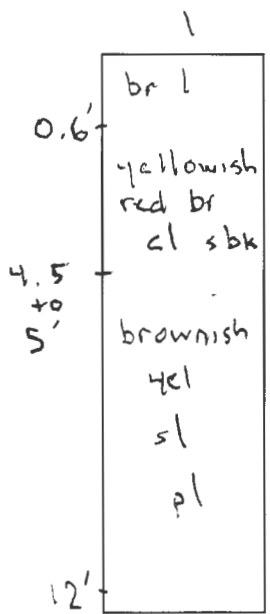 1
br l
0.6'
yellowish
red br
cl sbk
4.5
to
5'
brownish
yel
sl
pl
12'